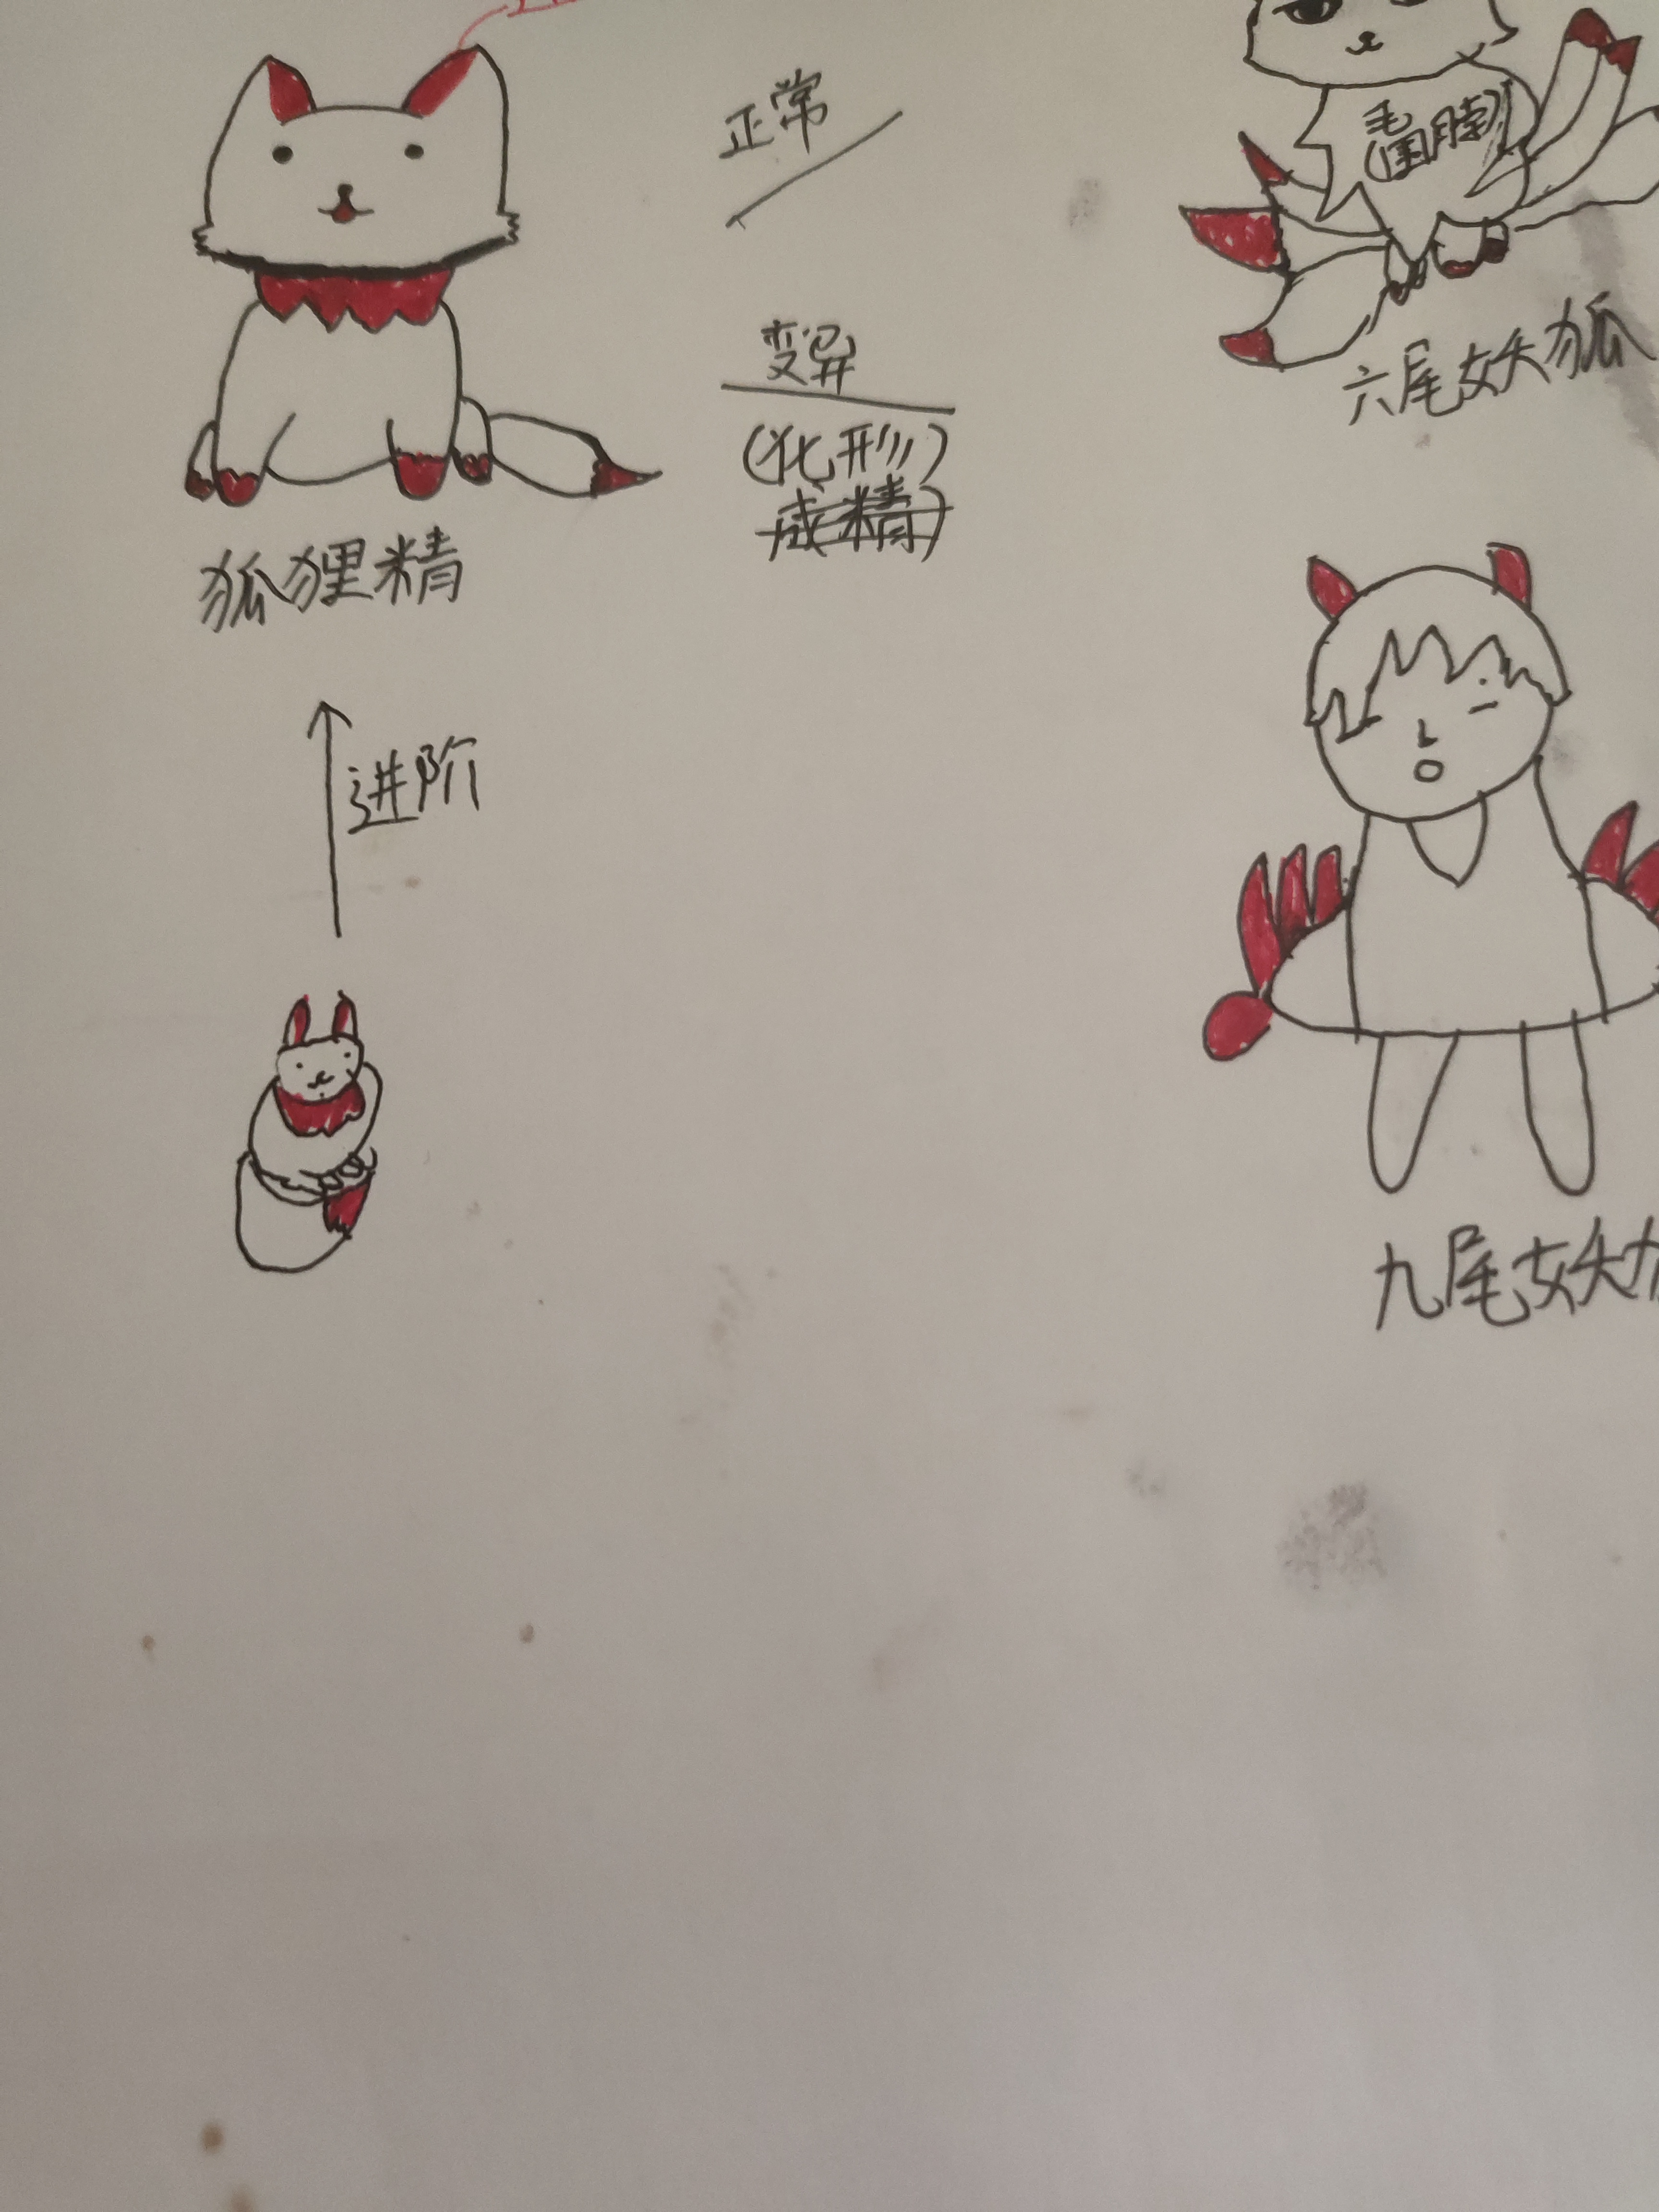 正常
毛
(围脖)
六尾妖狐
变异
(化形)
成精)
狐狸精
进阶
九尾妖